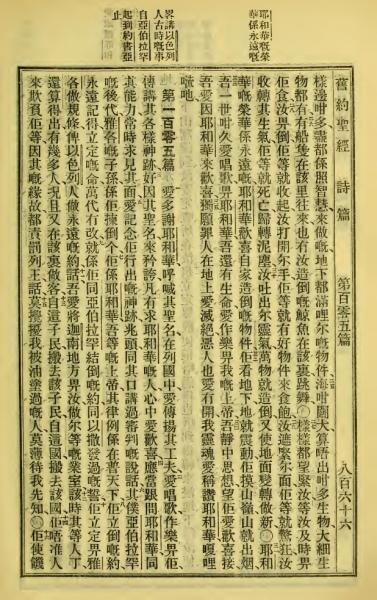 耶和華嘅榮
華係永遠嘅
畧講以色列
人古時嘅事
自亞伯拉罕
起到約書亞
止
舊約聖經 詩篇 第百零五篇 八百六十六
樣邊咁多盡都係照智慧來做嘅地下都滿哩尔嘅物件海咁闊大算唔出咁多生物大細生
物都有有船隻在該里往來也有汝造倒嘅鯨魚在該裏跳舞○樣樣都望緊汝等汝及時畀
佢食汝畀倒佢等就收起汝打開尔手佢等就有好物件來食飽汝遮緊尔面佢等就驚狂汝
收轉其生氣佢等就死亡歸轉泥塵汝吐出尔靈氣萬物就造倒又使地面變轉做新○耶和
華嘅榮華係永遠嘅耶和華歡喜自家造倒嘅物件佢看地下地就震動佢摸山嶺山就出烟
吾一世咁久愛唱歌畀耶和華吾還有生命愛作樂畀我嘅上帝吾靜中思想望佢愛歡喜接
吾愛因耶和華來歡喜獨願罪人在地上愛滅絕惡人也愛冇開我靈魂愛稱讚耶和華嗄哩
吔
第一百零五篇 愛多謝耶和華呼喊其聖名在列國中愛傳揚其工夫愛唱歌作樂畀佢
傳講其各樣神跡好因其聖名來矜誇凡有求耶和華嘅人心中愛歡喜應當跟問耶和華同
其能力常時求見其面愛記念佢行出嘅神跡兆頭同其口講過審判嘅說話其僕亞伯拉罕
嘅後代雅各嘅子孫係佢揀倒个佢係耶和華吾等嘅上帝其律例係在普天下佢立倒嘅約
永遠記得立定嘅命萬代冇改就係佢同亞伯拉罕結倒嘅約同以撒發過嘅誓佢立定畀雅
各做規條俾以色列人做永遠嘅約話吾愛將迦南地方畀汝做尔等嘅業室該時其等人丁
還算得出有幾多人況且又在該裏做客自這子民搬去該子民自這國搬去該國佢唔准人
來欺負佢等因其嘅緣故都責罰列王話莫攪擾我被油塗過嘅人莫薄待我先知○佢使饑